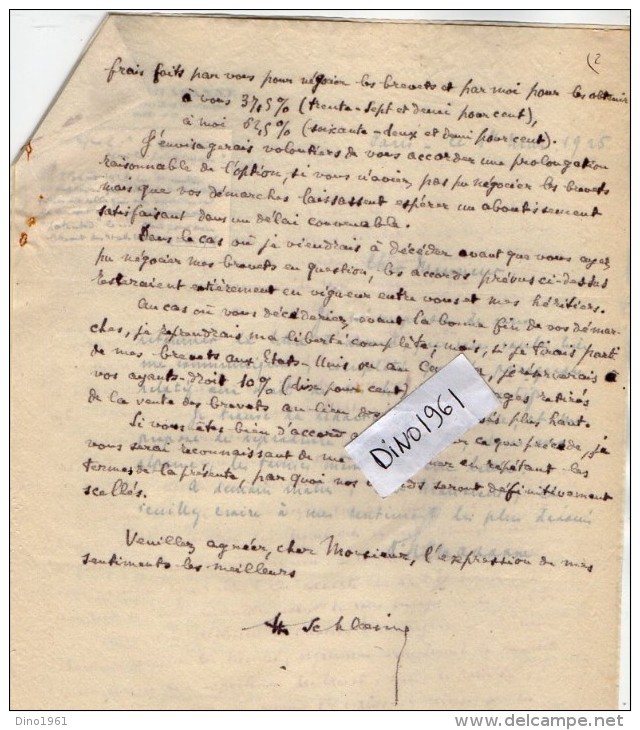 (2
frais faits par vous pour négocier les brevets et par moi pour les obtenir
à vous 37,5% (trente-sept et demi pour cent),
à moi 62,5% (soixante-deux et demi pour cent).
J'envisagerais volontiers de vous accorder une prolongation
raisonnable de l'option, si vous n'aviez pas pu négocier les brevets
mais que vos démarches laissassent espérer un aboutissement
satisfaisant dans un délai convenable.
Dans le cas où je viendrais à décéder avant que vous ayez
pu négocier mes brevets en question, les accords prévus ci-dessus
resteraient entièrement en vigueur entre vous et mes héritiers.
Au cas où vous décéderiez avant la bonne fin de vos démar-
ches, je reprendrais ma liberté complète; mais, si je tirais parti
de mes brevets aux Etats-Unis ou au je réserverais à
vos ayants-droit 10% (dix pour cent) retirés
de la vente des brevets au lieu des plus haut.
Si vous êtes bien d'accord ce qui précède, je
vous serai reconnaissant de me en répétant les
termes de la présente, par quoi nos seront définitivement
scellés.
Veuillez agréer, cher Monsieur, l'expression de mes
sentiments les meilleurs
DINO1961
Dino1961
delcampe.net